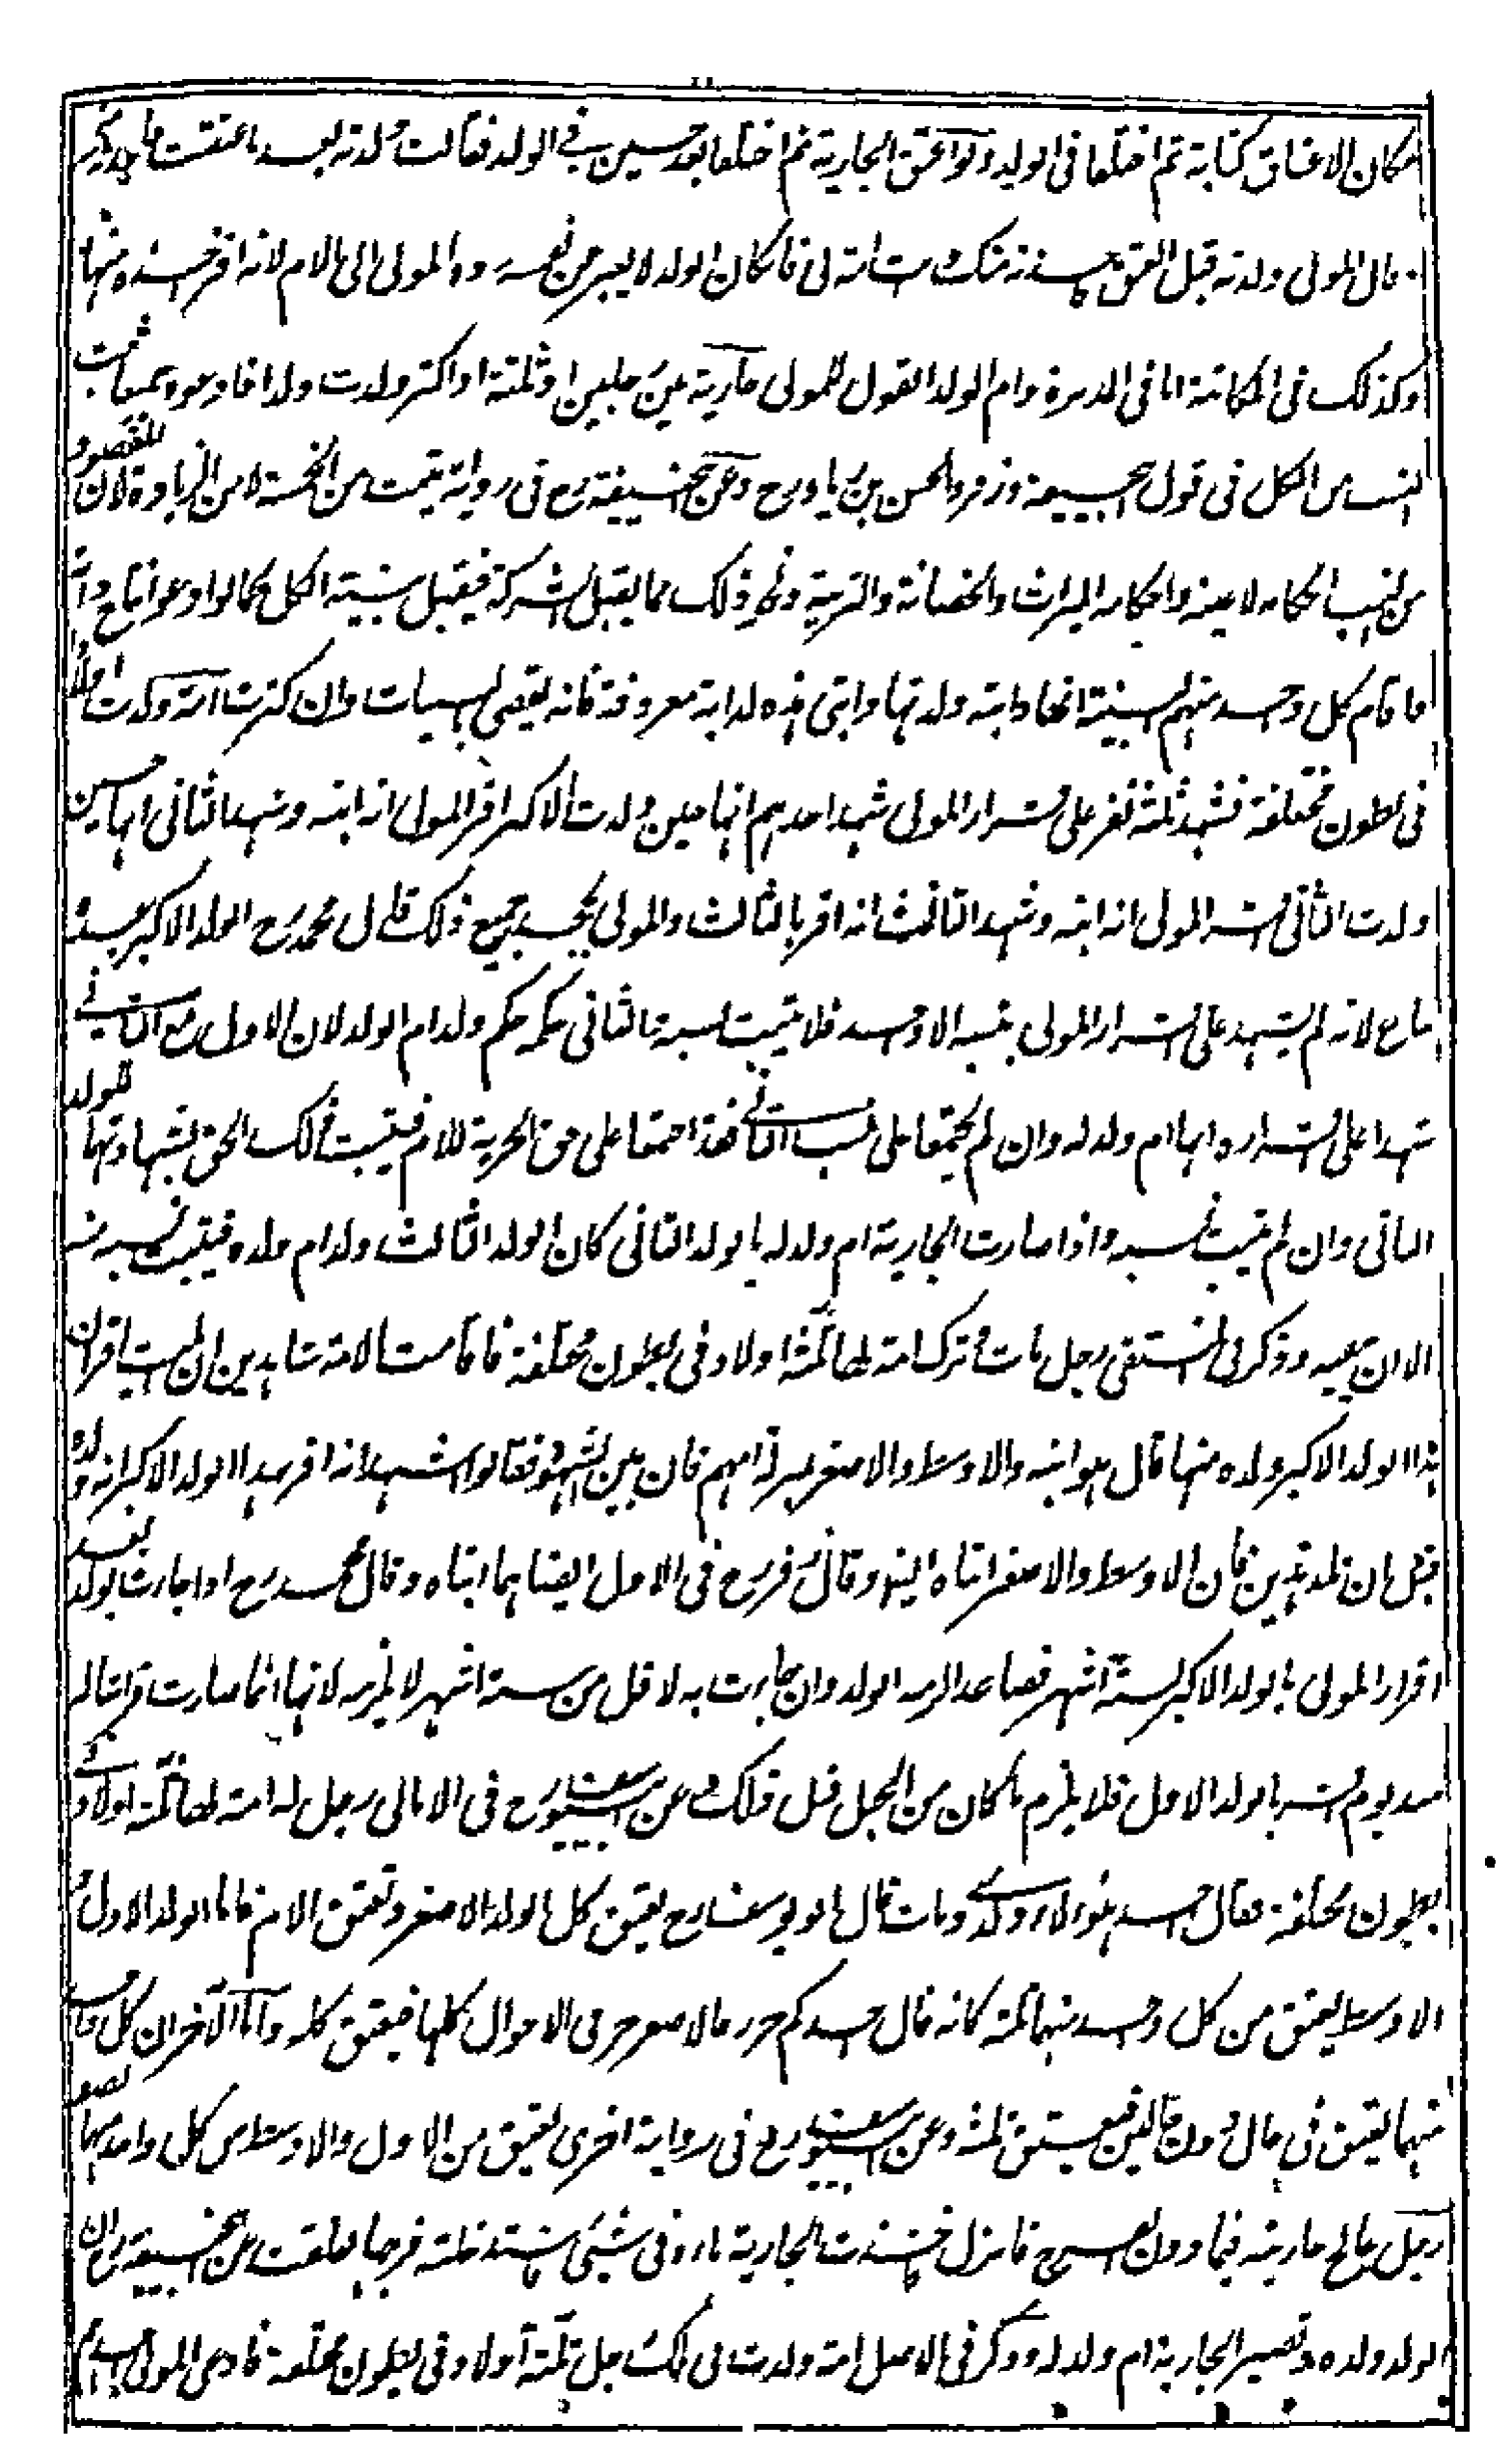 مكان الاعتاق كتابة ثم اختلفا فى الولد ولو اعتق الجارية ثم اختلفا بعد حين فى الولد فقالت ولدته بعد ما عتقت
قال المولى ولدته قبل العتق منك امة لى فان كان الولد لا يعبر عن نفسه رده المولى الى الام لانه اخذه منها
وكذلك فى المكاتبة اما فى المدبرة وام الولد القول للمولى جارية بين رجلين او ثلثة او اكثر ولدت ولدا فادعوه جميعا يثبت
النسب من الكل فى قول ابيحنيفة وزفر والحسن بن زياد رح وعن ابيحنيفة رح فى رواية يثبت من الخمسة لا من الزيادة لان المقصود
من النسب احكامه لا عينه واحكامه الميراث والحضانة والتربية ونحو ذلك مما يقبل الشركة فيقبل بينة الكل كما لو ادعوا نتاج دابة
اقام كل واحد منهم البينة انها دابته ولدتها دابتى هذه لدابة معروفة فانه يقضى بالبينات وان كثرت امة ولدت اولادا
فى بطون مختلفة فشهد ثلثة نفر على اقرار المولى شهد احدهم انها حين ولدت الاكبر اقر المولى انه ابنه وشهد الثانى انها حين
ولدت الثانى اقر المولى انه ابنه وشهد الثالث انه اقر بالثالث والمولى يجحد جميع ذلك قال محمد رح الولد الاكبر عبد
يباع لانه لم يشهد على اقرار المولى بنسبه الا واحد فلا يثبت نسبه والثانى حكمه حكم ولد ام الولد لان الاول مع الثانى
شهدا على اقراره انها ام ولد له وان لم يجتمعا على نسب الثانى فقد اجتمعا على حق الحرية للام فيثبت ذلك الحق بشهادتهما للولد
الثانى وان لم يثبت نسبه واذا صارت الجارية ام ولد له بالولد الثانى كان الولد الثالث ولد ام ولده فيثبت نسبه منه
الا ان ينفيه وذكر فى المنتقى رجل مات وترك امة لها ثلثة اولاد فى بطون مختلفة فاقامت الامة شاهدين ان الميت اقر ان
هذا الولد الاكبر ولده منها قال هو ابنه والاوسط والاصغر بمنزلة امهم فان بين الشهود فقالوا نشهد انه اقر بهذا الولد الاكبر انه ولده
قبل ان تلد هذين فان الاوسط والاصغر ابناه ايضا وقال زفر رح فى الاول ايضا هما ابناه وقال محمد رح اذا جاءت بولد بعد
اقرار المولى بالولد الاكبر لستة اشهر فصاعدا لزمه الولد وان جاءت به لاقل من ستة اشهر لا يلزمه لانها انما صارت فراشا له
منذ يوم اقر بالولد الاول فلا يلزم ما كان من الحبل قبل ذلك وعن ابى يوسف رح فى الامالى رجل له امة لها ثلثة اولاد فى
بطون مختلفة فقال احد هؤلاء ولدى ومات قال ابو يوسف رح يعتق كل الولد الاصغر وتعتق الام فاما الولد الاول و
الاوسط يعتق من كل واحد منهما ثلثه كانه قال احدكم حر والاصغر حر فى الاحوال كلها فيعتق كله واما الآخران كل واحد
منهما يعتق فى حال دون حالين فيعتق ثلثه وعن ابى يوسف رح فى رواية اخرى يعتق من الاول والاوسط من كل واحد منهما نصفه
رجل عالج جارية فيما دون الفرج فانزل فاخذت الجارية ماءه فى شئ فاستدخلته فرجها فعلقت عن ابيحنيفة رح ان
الولد ولده وتصير الجارية ام ولد له وذكر فى الاصل امة ولدت فى ملك رجل ثلثة اولاد فى بطون مختلفة فادعى المولى احدهم